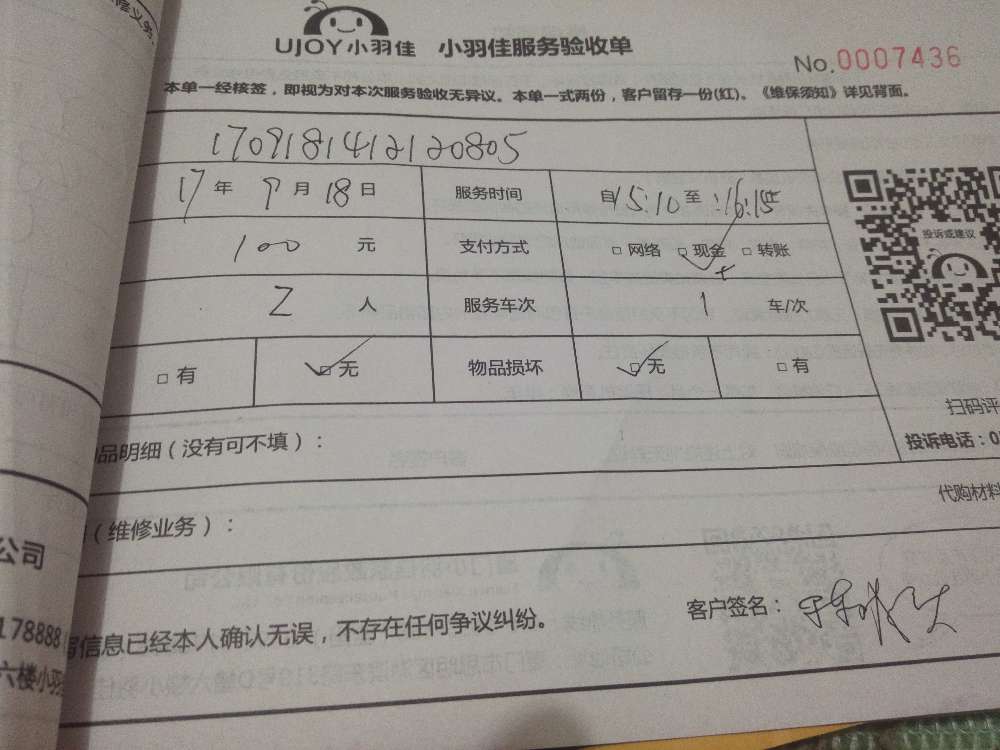 UJOY小羽佳 小羽佳服务验收单
No.0007436
本单一经核签，即视为对本次服务验收无异议。本单一式两份，客户留存一份(红)。《维保须知》详见背面。
1709181412120805
17年 9月18日 服务时间 自15:10至:16:15止
100 元 支付方式 □网络 □现金 □转账
2 人 服务车次 1 车/次
□有 □无 物品损坏 □无 □有
投诉或建议
扫码评
品明细（没有可不填）：
投诉电话：0
（维修业务）：
代购材料
公司
178888
六楼小羽
写信息已经本人确认无误，不存在任何争议纠纷。
客户签名：